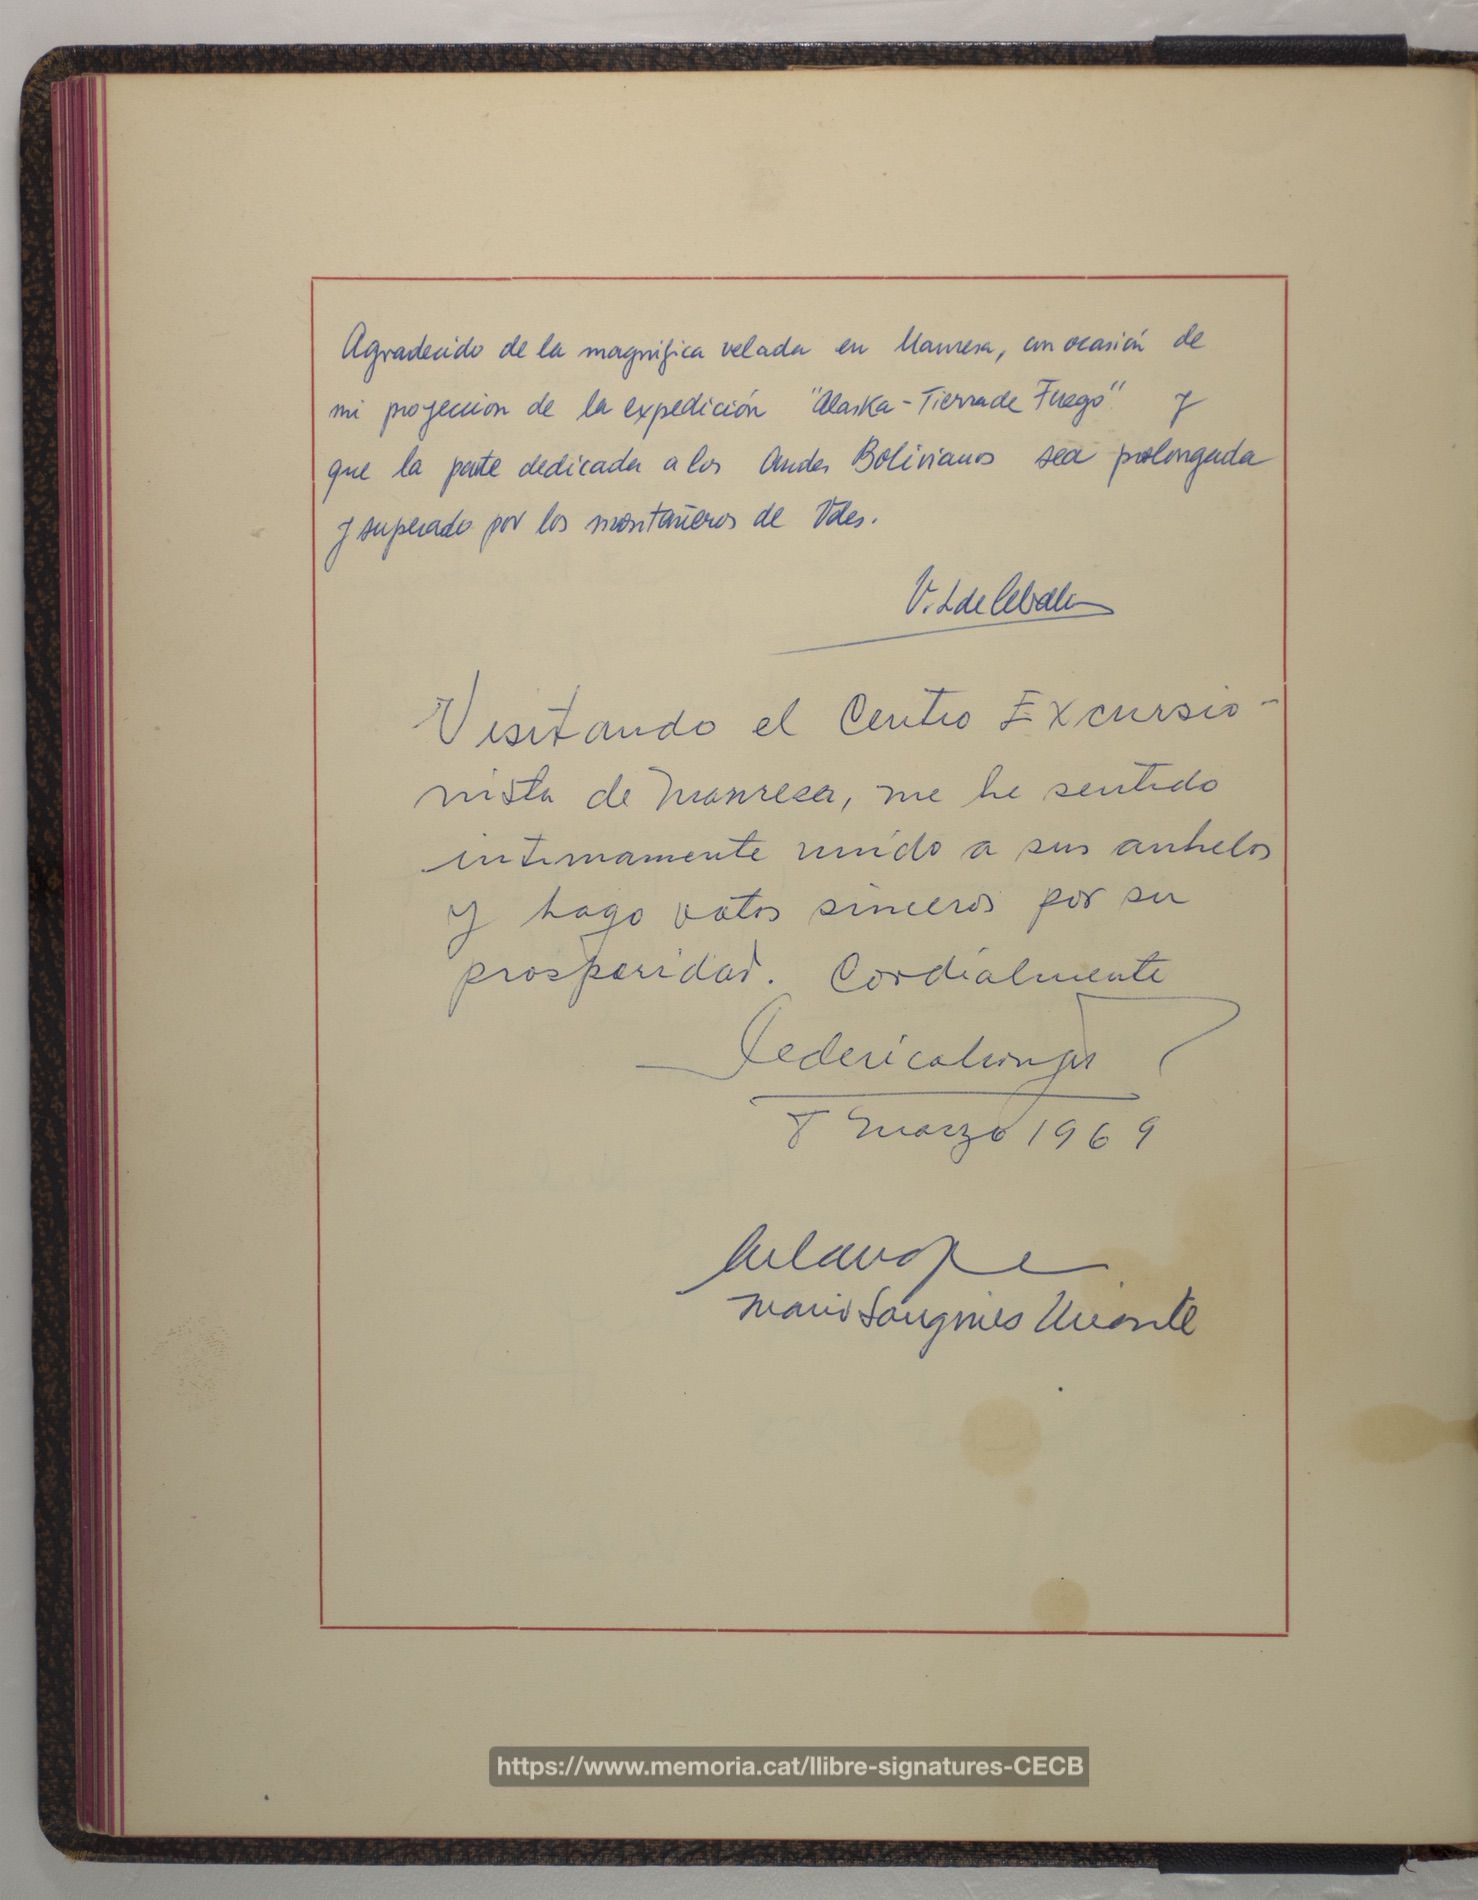 Agradecido de la magnifica velada en Manresa, con ocasión de
mi proyeccion de la expedición "Alaska-Tierra de Fuego" y
que la parte dedicada a los Andes Bolivianos sea prolongada
y superado por los montañeros de Vdes.
Visitando el Centro Excursio-
nista de Manresa, me he sentido
intimamente unido a sus anhelos
y hago votos sinceros por su
prosperidad. Cordialmente
8 Marzo 1969
Mario Sanginés Uriarte
https://www.memoria.cat/llibre-signatures-CECB